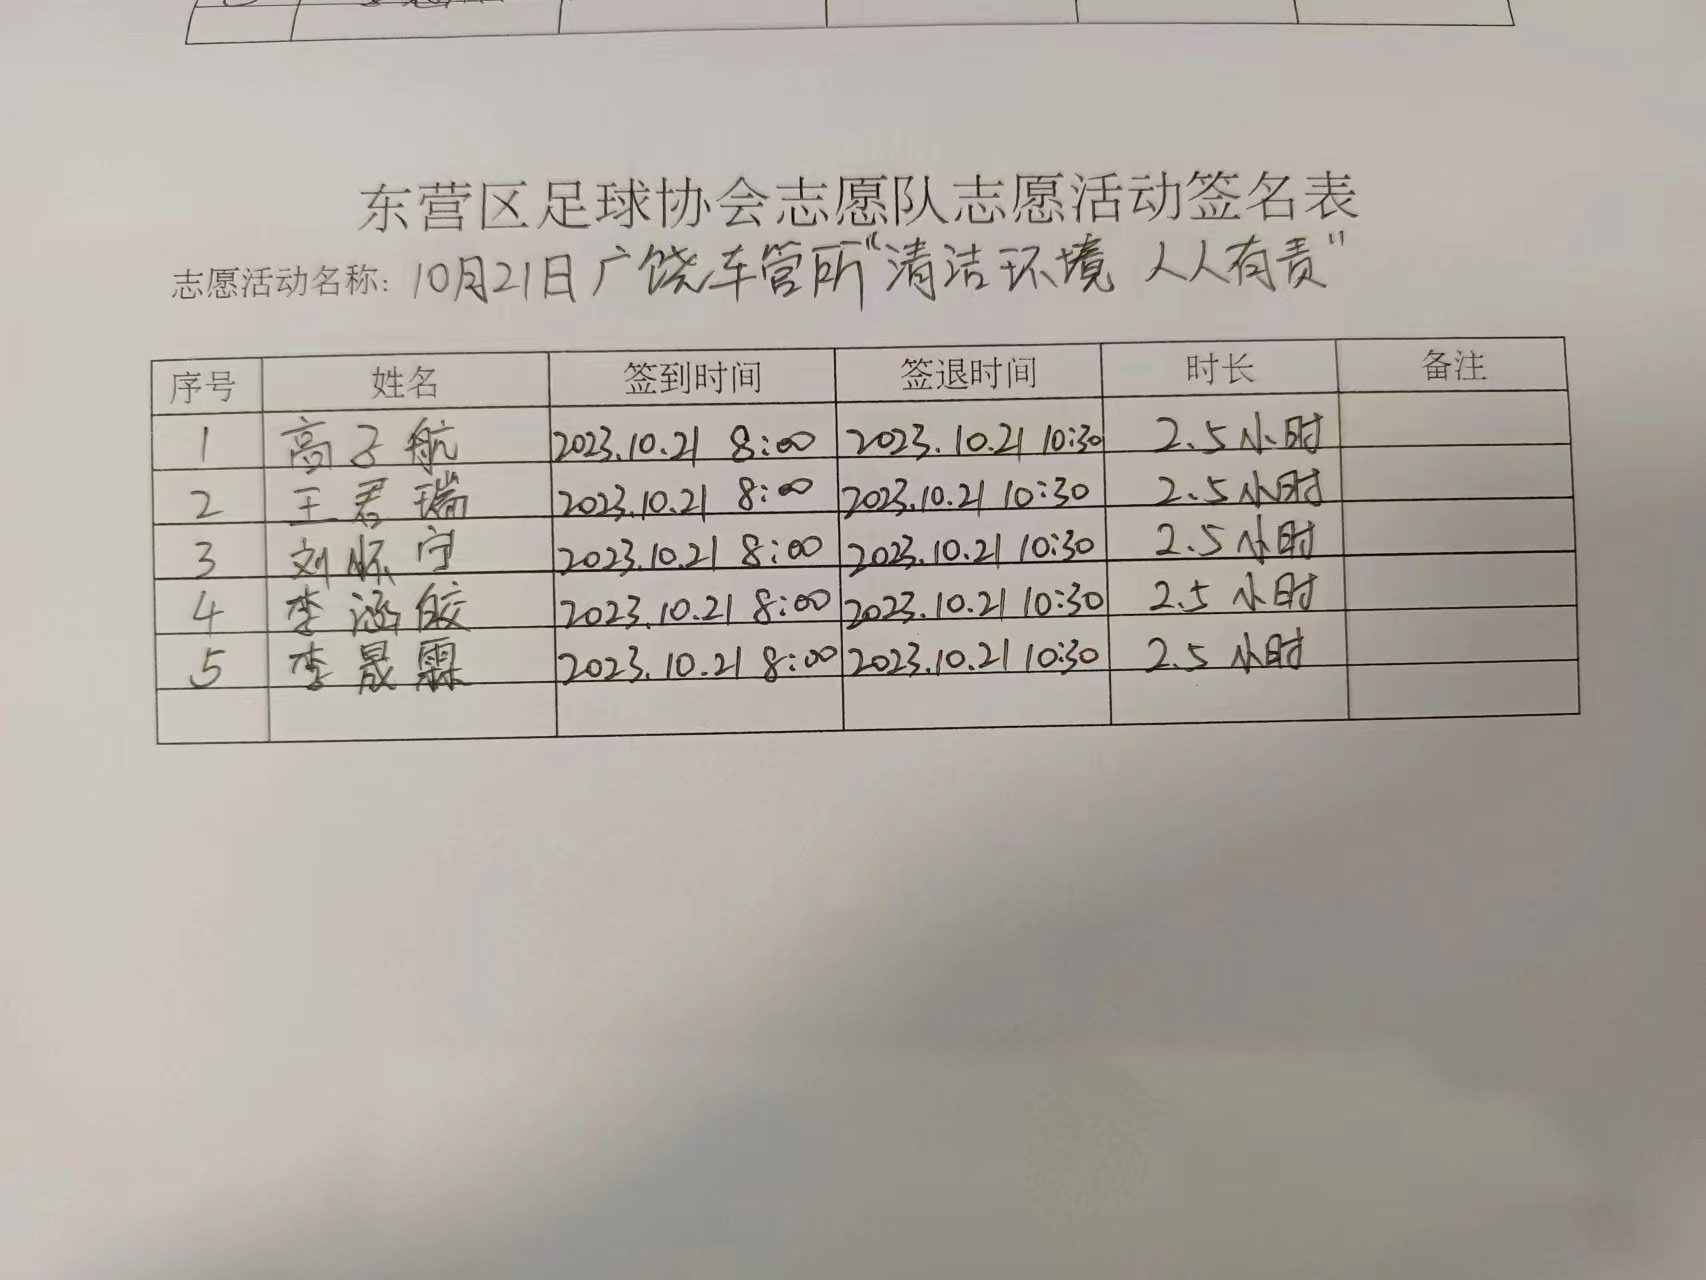 东营区足球协会志愿队志愿活动签名表
志愿活动名称: 10月21日广饶车管所“清洁环境 人人有责”
序号 姓名 签到时间 签退时间 时长 备注
1 高子航 2023.10.21 8:00 2023.10.21 10:30 2.5小时
2 王君瑞 2023.10.21 8:00 2023.10.21 10:30 2.5小时
3 刘怀宁 2023.10.21 8:00 2023.10.21 10:30 2.5小时
4 李涵皎 2023.10.21 8:00 2023.10.21 10:30 2.5小时
5 李晟霖 2023.10.21 8:00 2023.10.21 10:30 2.5小时